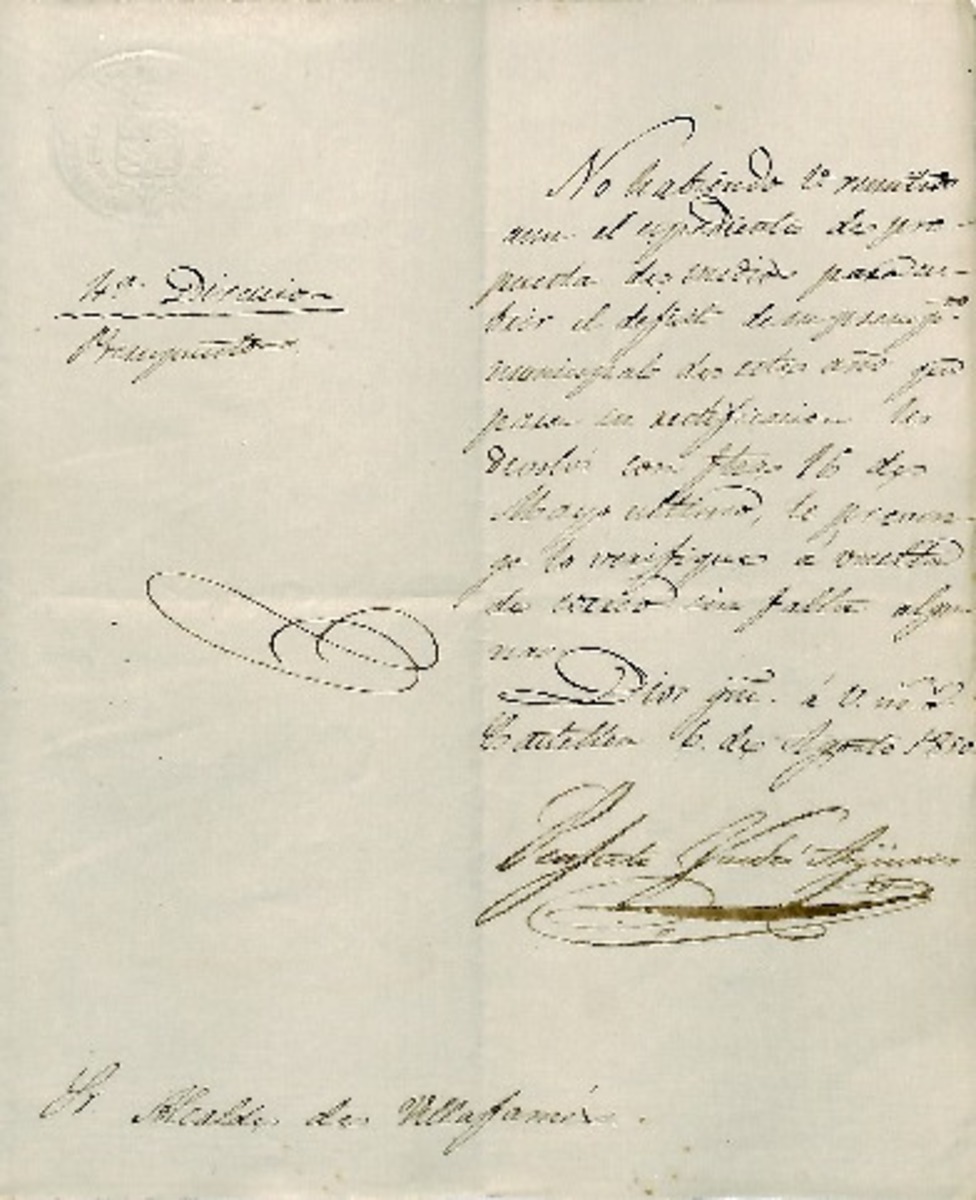 4ª. Direccion
Presupuestos
No habiendo V. remitido
aun el espediente de pro-
puesta de medios para cu-
brir el deficit de su presup.to
municipal de este año que
para su rectificacion le
devolví con fecha 16 de
Mayo ultimo, le preven-
go lo verifique á vuelta
de correo sin falta algu-
na.
Dios gue. á V. m.s a.s
Castellon 6 de Agosto 1850
Sr Alcalde de Villafamés.